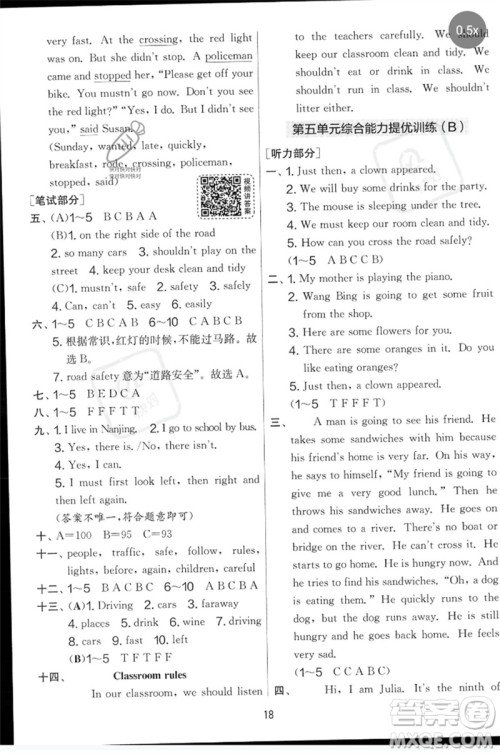 very fast. At the crossing, the red light
was on. But she didn't stop. A policeman
came and stopped her, "Please get off your
bike. You mustn't go now. Don't you see
the red light?" "I'm sorry. I can't see the
light," said Susan.
(Sunday, wanted, late, got up, quickly,
breakfast, rode, crossing, policeman,
stopped)
[笔试部分]
五、(A)1~5 BCBAA
(B)1. on the right side of the road
2. so many cars 3. shouldn't play on the
street 4. keep your desk clean and tidy
(C)1. mustn't, safe 2. safety 3. safely
4. Can, can't 5. easy 6. easily
六、1~5 CBCAB 6~10 CBCBA
5. 根据常识,红灯的时候,不能过马路。故
选 B。
7. road safety 意为"道路安全"。故选 A。
七、1~5 BEDCA
八、1~5 FTFFT
九、1. I live in Nanjing. 2. I go to school by bus.
3. Yes, there is. /No, there isn't.
4. Yes, I can.
5. I must look left, look right and then
left again.
(答案不唯一,符合题意即可)
十、A=100 B=65 C=93
十一、people, traffic, safe, follow, rules,
lights, before, again, children, careful
十二、1~5 BACBC 6~10 ACCBA
十三、(A)1. Driving 2. cars 3. faraway
4. places 5. drink 6. wine 7. drive
8. cars 9. fast 10. driving
(B)1~5 TTFTF
十四、 Classroom rules
In our classroom, we should listen
to the teachers carefully. We should
keep our classroom clean and tidy. We
shouldn't eat or drink in class. We
shouldn't run in the classroom. We
shouldn't litter either.
第五单元综合能力提优训练(B)
[听力部分]
一、1. Just then, a clown appeared.
2. We will buy some drinks.
3. The mouse is sleeping under the tree.
4. We must keep our room clean and tidy.
5. How can you cross the road safely?
(1~5 ABCCB)
二、1. My mother is playing the piano.
2. Wang Bing is going to get some fruit
from his friend.
3. Here are some flowers for you.
4. There are some oranges in it. Do you
like eating oranges?
5. Just then, a clown appeared.
(1~5 FTTFF)
三、 A man is going to see his friend. He
takes some sandwiches with him because
his friend's home is very far. On his way,
he says to himself, "My friend is going to
give me a very good lunch." Then he
throws the sandwiches away. He goes on
and comes to a river. There's no boat or
bridge on the river. He can't cross it. And
he tries to find his sandwiches. "Oh, a dog
is eating them." He quickly runs to the
dog, but the dog runs away. He can't get
anything, so he goes back home. He feels
very sad.
(1~5 TTFTF)
四、 Hi, I am Julia. It's the ninth of
18
0.5x
视频讲答案
快对快对快对
答案圈
MXQE.COM